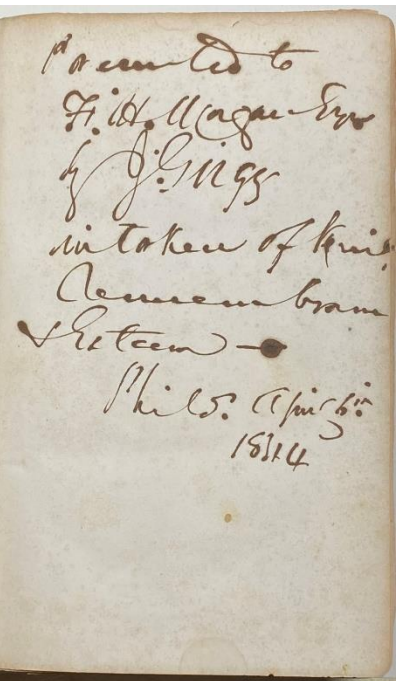 Presented to
F. H. Morgan Esqr
by J. Grigg
in token of kind
Remembrance
& Esteem —
Philda. April 6th
1844